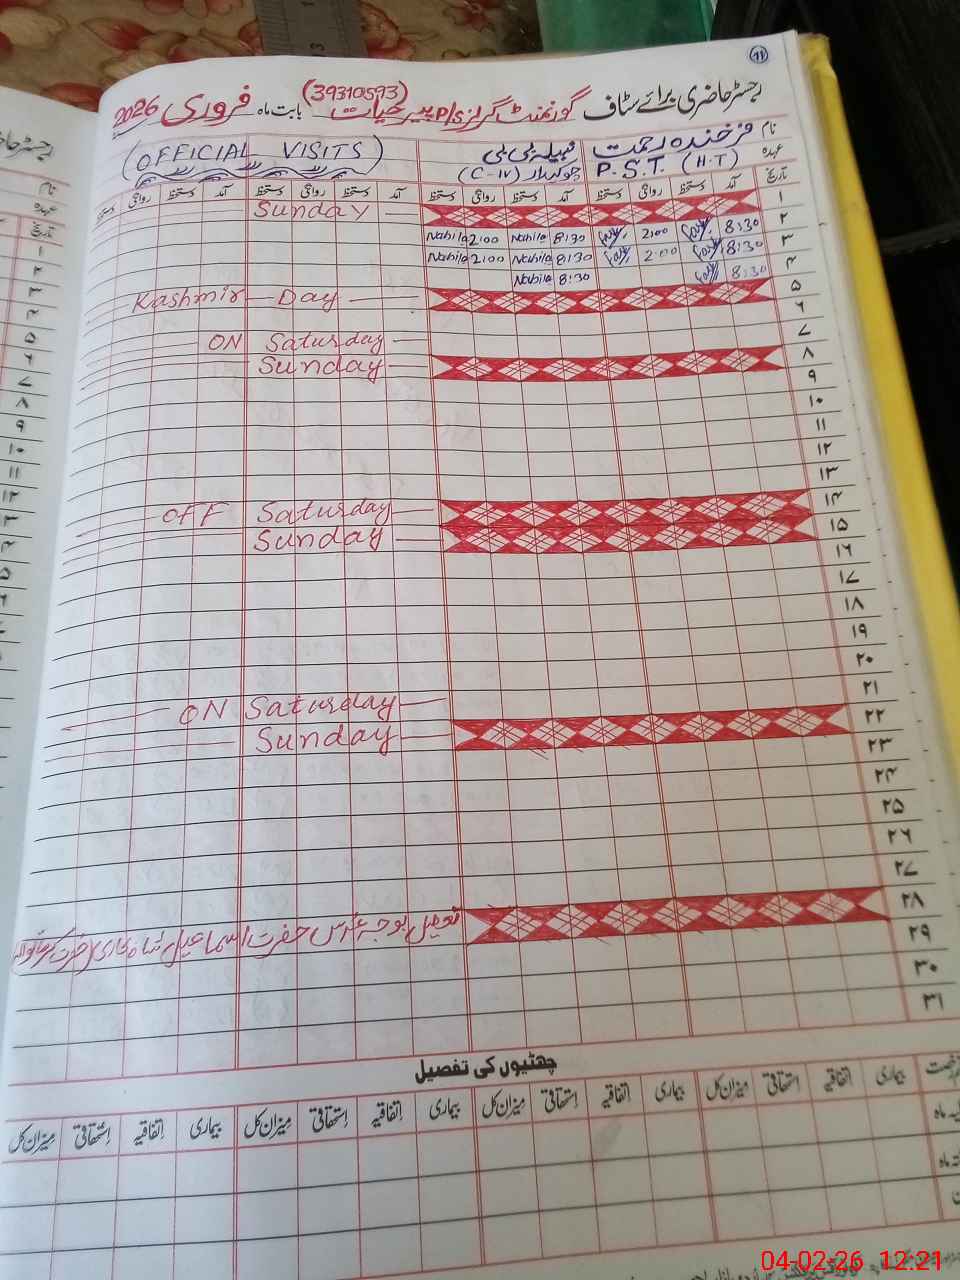 11
رجسٹر حاضری برائے سٹاف گورنمنٹ گرلز P/S پیر حیات (39310593) بابت ماہ فروری 2026
نام فرخندہ رحمت نبیلہ بی بی (OFFICIAL VISITS)
عہدہ P.S.T. (H.T) چوکیدار (C-IV)
تاریخ آمد دستخط روانگی دستخط آمد دستخط روانگی دستخط آمد دستخط روانگی دستخط آمد دستخط روانگی دستخط
۱ Sunday
۲ 8:30 2:00 8:30 Nabila 2:00 Nabila
۳ 8:30 2:00 8:30 Nabila 2:00 Nabila
۴ 8:30 8:30 Nabila
۵ Kashmir Day
۶
۷ ON Saturday
۸ Sunday
۹
۱۰
۱۱
۱۲
۱۳
۱۴ OFF Saturday
۱۵ Sunday
۱۶
۱۷
۱۸
۱۹
۲۰
۲۱ ON Saturday
۲۲ Sunday
۲۳
۲۴
۲۵
۲۶
۲۷
۲۸ تعطیل بوجہ عرس حضرت اسماعیل شاہ بخاری
۲۹
۳۰
۳۱
چھٹیوں کی تفصیل
بیماری اتفاقیہ استحقاقی میزان کل بیماری اتفاقیہ استحقاقی میزان کل بیماری اتفاقیہ استحقاقی میزان کل
04-02-26 12:21